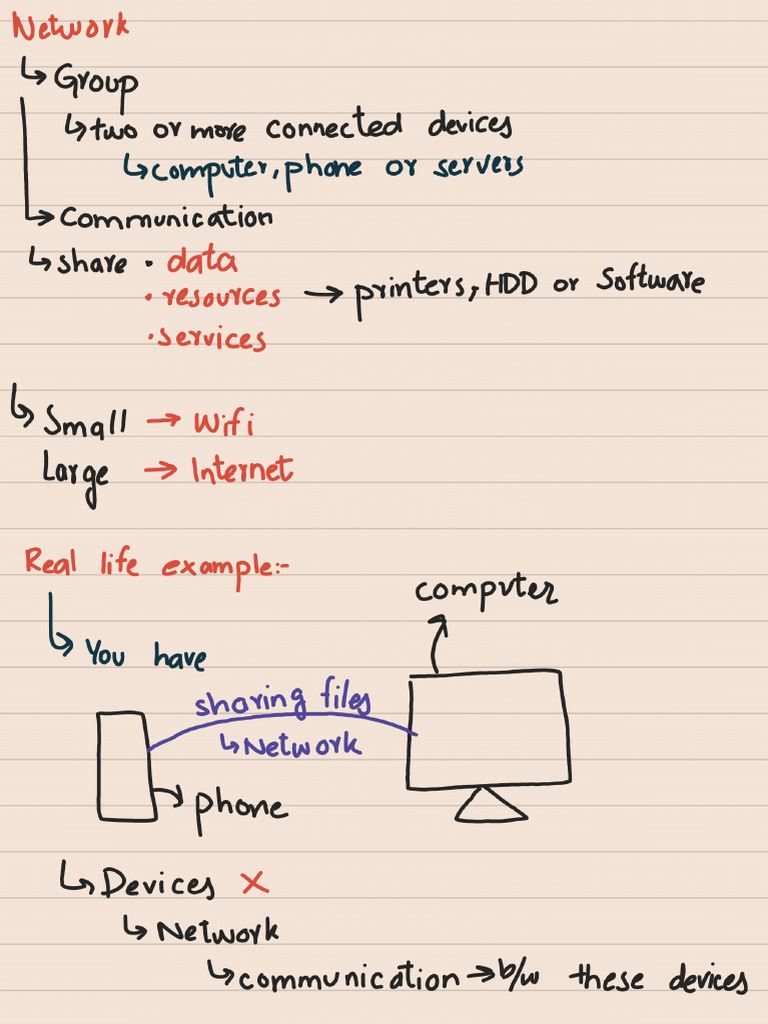 Network
↳ Group
↳ two or more connected devices
↳ computer, phone or servers
→ Communication
↳ share • data
• resources → printers, HDD or Software
• services
↳ Small → Wifi
Large → Internet
Real life example:-
computer
↳ You have
sharing files
↳ Network
phone
↳ Devices ✗
↳ Network
↳ communication → b/w these devices